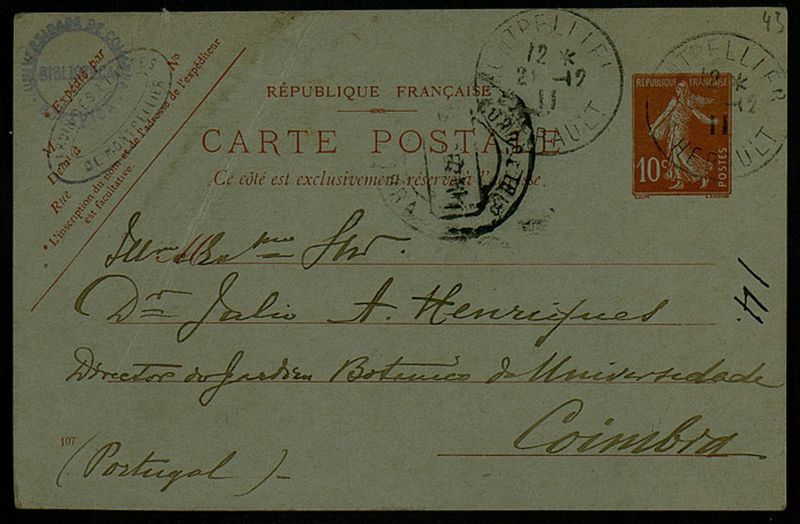 43
UNIVERSIDADE DE COIMBRA
BIBLIOTHECA
* Expédié par
M
Demeurant à
Rue
No
* L'inscription du nom et de l'adresse de l'expéditeur
est facultative.
DE MONTPELLIER
RÉPUBLIQUE FRANÇAISE
CARTE POSTALE
Ce côté est exclusivement réservé à l'adresse.
MONTPELLIER
12 *
21 -12
11
HERAULT
MONTPELLIER
12 *
-12
11
HERAULT
RÉPUBLIQUE FRANÇAISE
10c
POSTES
Snr.
Dr Julio A. Henriques
Director do Jardim Botanico da Universidade
Coimbra
(Portugal)-
107
14